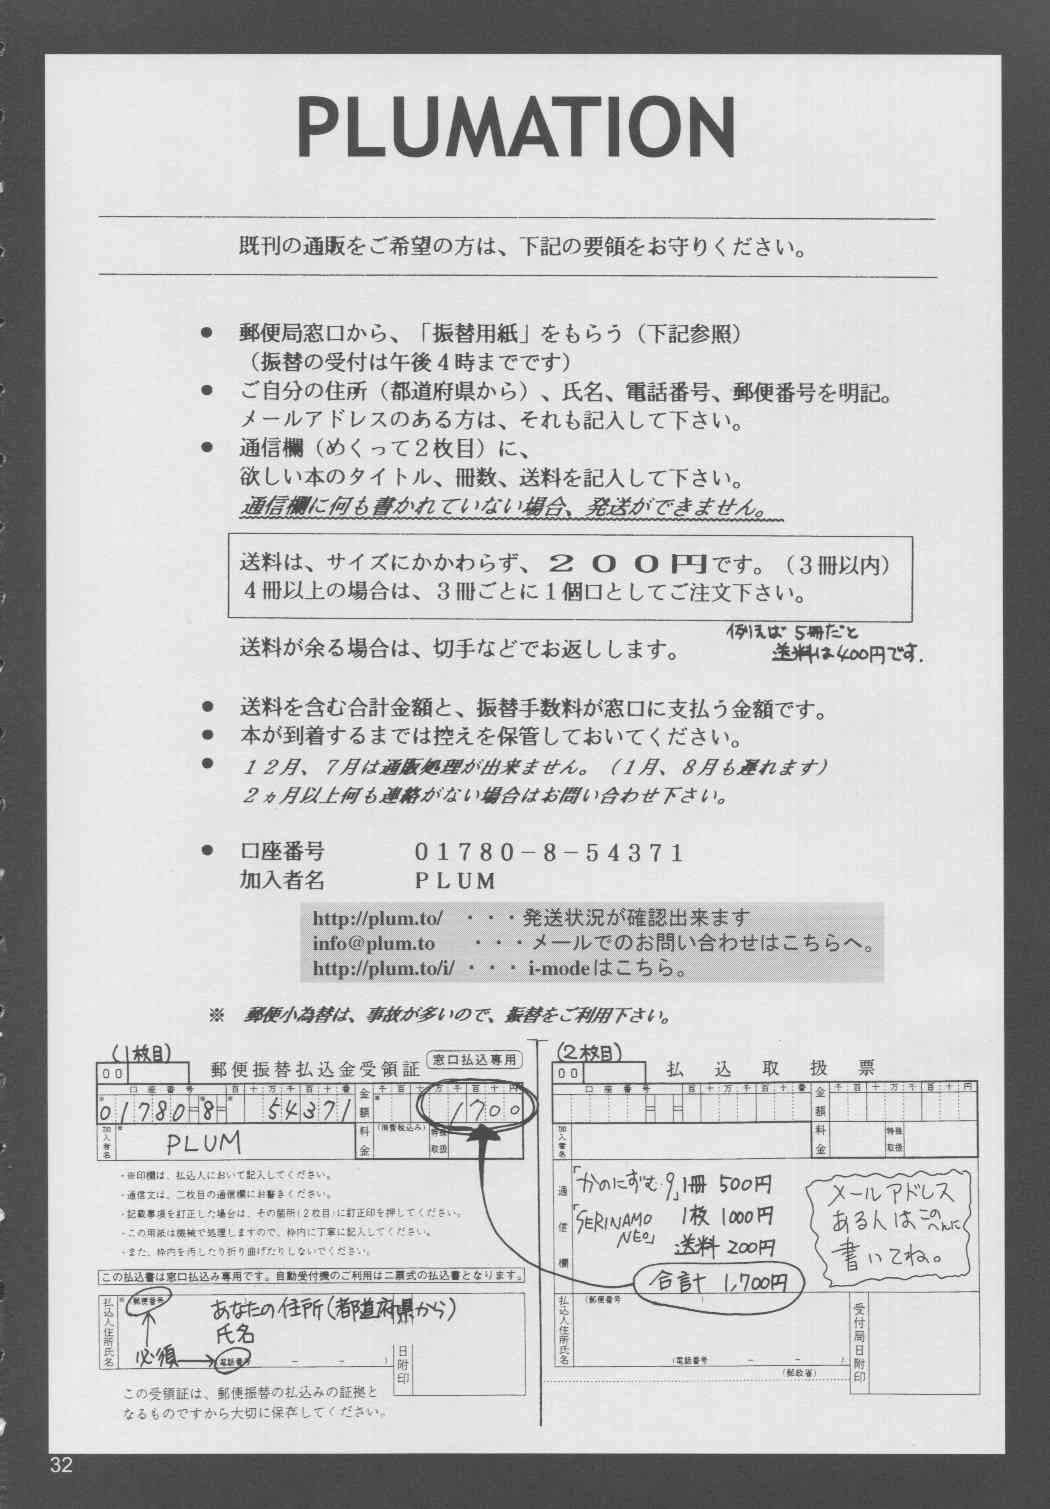 PLUMATION
既刊の通販をご希望の方は、下記の要領をお守りください。
● 郵便局窓口から、「振替用紙」をもらう（下記参照）
（振替の受付は午後４時までです）
● ご自分の住所（都道府県から）、氏名、電話番号、郵便番号を明記。
メールアドレスのある方は、それも記入して下さい。
● 通信欄（めくって２枚目）に、
欲しい本のタイトル、冊数、送料を記入して下さい。
通信欄に何も書かれていない場合、発送ができません。
送料は、サイズにかかわらず、２００円です。（３冊以内）
４冊以上の場合は、３冊ごとに１個口としてご注文下さい。
例えば 5冊だと
送料は400円です.
送料が余る場合は、切手などでお返しします。
● 送料を含む合計金額と、振替手数料が窓口に支払う金額です。
● 本が到着するまでは控えを保管しておいてください。
● １２月、７月は通販処理が出来ません。（１月、８月も遅れます）
２ヵ月以上何も連絡がない場合はお問い合わせ下さい。
● 口座番号 ０１７８０－８－５４３７１
加入者名 ＰＬＵＭ
http://plum.to/ ・・・発送状況が確認出来ます
info@plum.to ・・・メールでのお問い合わせはこちらへ。
http://plum.to/i/ ・・・ i-modeはこちら。
※ 郵便小為替は、事故が多いので、振替をご利用下さい。
(1枚目)
00 郵便振替払込金受領証 窓口払込専用
口座番号 百十万千百十番 金額 千百十万千百十円
01780-8- 54371 1700
加入者名 PLUM 料金 (消費税込み) 特殊取扱
・※印欄は、払込人において記入してください。
・通信文は、二枚目の通信欄にお書きください。
・記載事項を訂正した場合は、その箇所(2枚目)に訂正印を押してください。
・この用紙は機械で処理しますので、枠内に丁寧に記入してください。
・また、枠内を汚したり折り曲げたりしないでください。
この払込書は窓口払込み専用です。自動受付機のご利用は二票式の払込書となります。
払込人住所氏名
郵便番号
あなたの住所(都道府県から)
氏名
必須 → 電話番号 － － )
日附印
この受領証は、郵便振替の払込みの証拠と
なるものですから大切に保存してください。
(2枚目)
00 払込取扱票
口座番号 百十万千百十番 金額 千百十万千百十円
加入者名 料金 特殊取扱
通信欄
「かのにずむ・9」1冊 500円
「SERINAMO NEO」 1枚 1000円
送料 200円
合計 1,700円
メールアドレス
ある人はこのへんに
書いてね。
払込人住所氏名
(郵便番号 )
(電話番号 － － )
(郵政省)
受付局日附印
32